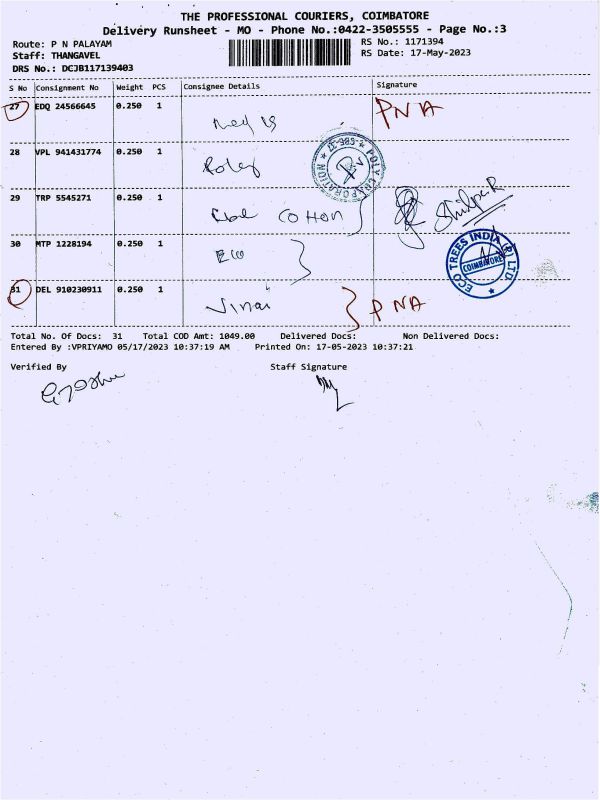 THE PROFESSIONAL COURIERS, COIMBATORE
Delivery Runsheet - MO - Phone No.:0422-3505555 - Page No.:3
Route: P N PALAYAM
RS No.: 1171394
Staff: THANGAVEL
RS Date: 17-May-2023
DRS No.: DCJB117139403
S No Consignment No Weight PCS Consignee Details Signature
27 EDQ 24566645 0.250 1 PNA
28 VPL 941431774 0.250 1
POLY CORPORATION
29 TRP 5545271 0.250 1 COTTON Shilpa R
30 MTP 1228194 0.250 1
ECO TREES INDIA (P) LTD
COIMBATORE
31 DEL 910230911 0.250 1 Vinai PNA
Total No. Of Docs: 31 Total COD Amt: 1049.00 Delivered Docs: Non Delivered Docs:
Entered By :VPRIYAMO 05/17/2023 10:37:19 AM Printed On: 17-05-2023 10:37:21
Verified By Staff Signature